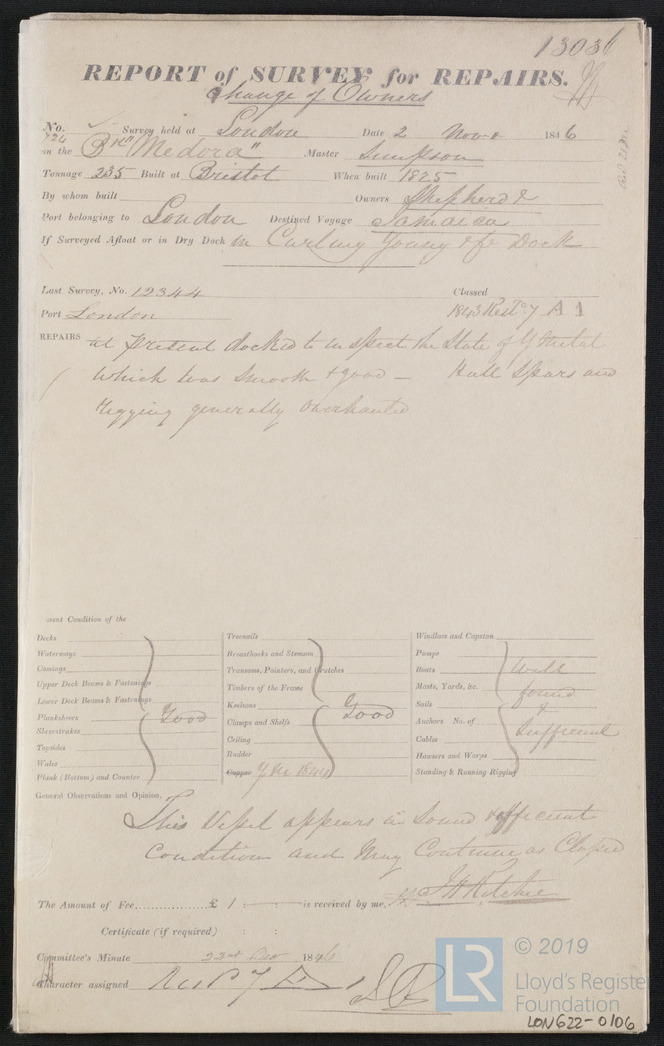 13036
REPORT of SURVEY for REPAIRS.
Change of Owners
No. 726 Survey held at London Date 2 Novr 1846
on the Bk "Medora" Master Simpson
Tonnage 235 Built at Bristol When built 1825
By whom built Owners Shepherd &
Port belonging to London Destined Voyage Jamaica
If Surveyed Afloat or in Dry Dock in Curling Young & Co Dock
Last Survey, No. 12344 Classed
Port London 1843 Restd 7 A 1
REPAIRS at present docked to inspect the State of Y Metal
which was Smooth & good — Hull Spars and
rigging generally overhauled
Present Condition of the
Decks
Waterways
Comings
Upper Deck Beams & Fastenings
Lower Deck Beams & Fastenings
Planksheers
Sheerstrakes
Topsides
Wales
Plank (Bottom) and Counter
Good
Treenails
Breasthooks and Stemson
Transoms, Pointers, and Crutches
Timbers of the Frame
Keelsons
Clamps and Shelfs
Ceiling
Rudder
Copper Y M 1844
Good
Windlass and Capstan
Pumps
Boats
Masts, Yards, &c.
Sails
Anchors No. of
Cables
Hawsers and Warps
Standing & Running Rigging
Well
found
&
Sufficient
General Observations and Opinion,
This Vessel appears in Sound & efficient
Condition and May Continue as Classed
The Amount of Fee £ 1 : : is received by me, J H Ritchie
Certificate (if required) : :
Committee's Minute 22nd 1846
Character assigned
LR © 2019
Lloyd's Register
Foundation
LON622-0106